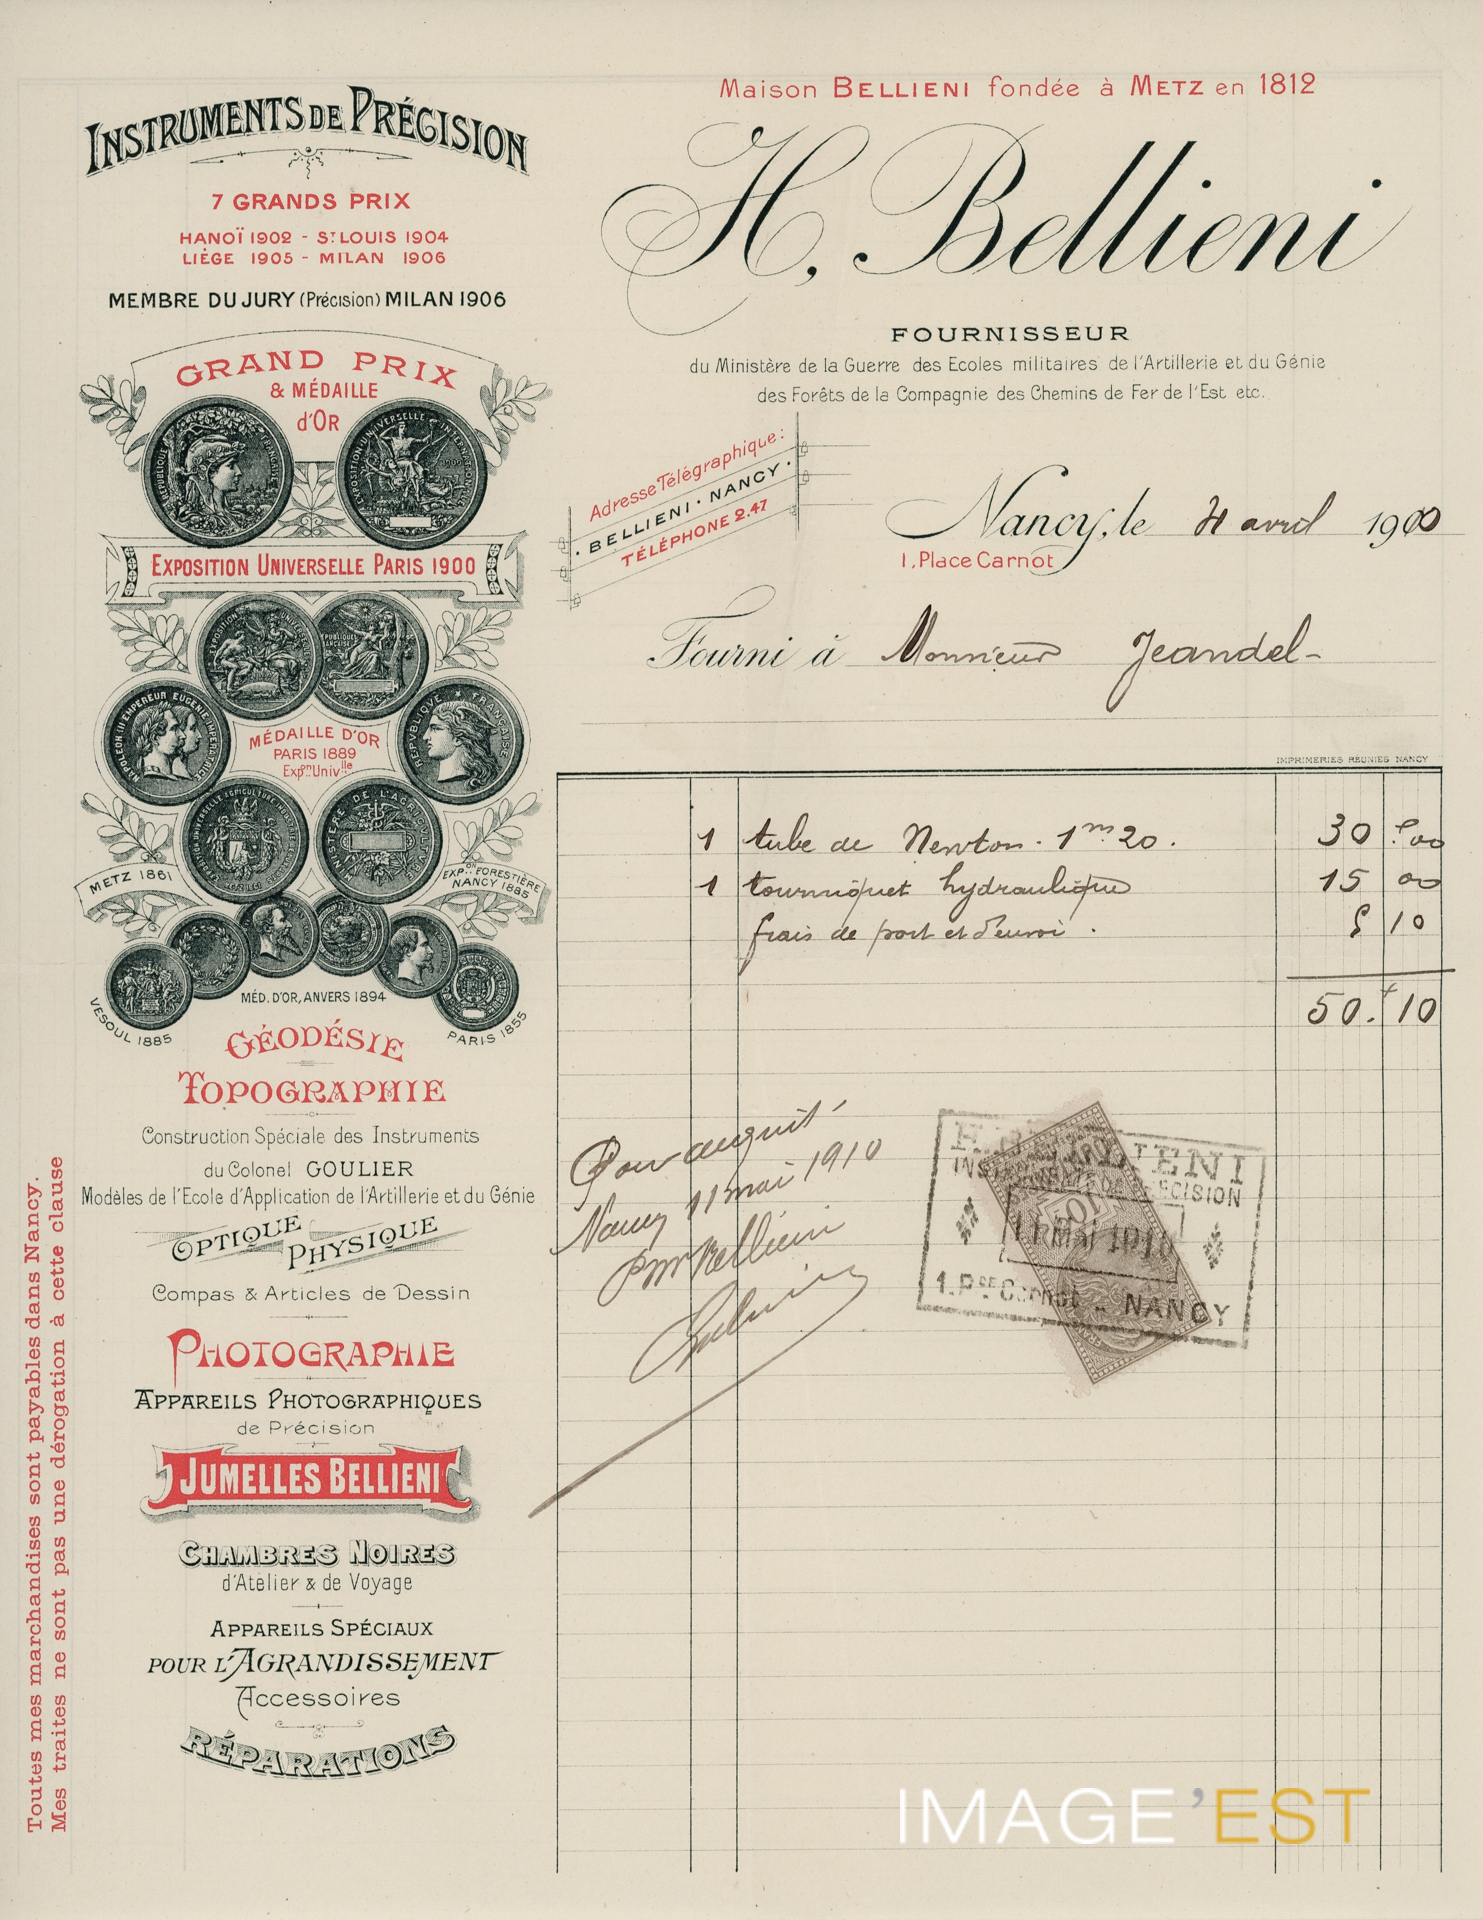 Maison BELLIENI fondée à METZ en 1812
INSTRUMENTS DE PRÉCISION
7 GRANDS PRIX
HANOÏ 1902 - ST LOUIS 1904
LIÈGE 1905 - MILAN 1906
MEMBRE DU JURY (Précision) MILAN 1906
H. Bellieni
FOURNISSEUR
du Ministère de la Guerre des Ecoles militaires de l'Artillerie et du Génie
des Forêts de la Compagnie des Chemins de Fer de l'Est etc.
GRAND PRIX
& MÉDAILLE
d'OR
REPUBLIQUE FRANÇAISE
EXPOSITION UNIVERSELLE INTERNATIONALE 1900
EXPOSITION UNIVERSELLE PARIS 1900
Adresse Télégraphique:
· BELLIENI · NANCY ·
TÉLÉPHONE 2.47
Nancy, le 4 avril 1900
1, Place Carnot
Fourni à Monsieur Jeandel-
NAPOLEON III EMPEREUR EUGENIE IMPERATRICE
REPVBLIQVE * FRANÇAISE
MÉDAILLE D'OR
PARIS 1889
Expon Univlle
MINISTÈRE DE L'AGRICULTURE
METZ 1861
EXP.on FORESTIÈRE
NANCY 1885
MÉD. D'OR, ANVERS 1894
VESOUL 1885
PARIS 1855
GÉODÉSIE
TOPOGRAPHIE
Construction Spéciale des Instruments
du Colonel GOULIER
Modèles de l'Ecole d'Application de l'Artillerie et du Génie
OPTIQUE
PHYSIQUE
Compas & Articles de Dessin
PHOTOGRAPHIE
APPAREILS PHOTOGRAPHIQUES
de Précision
JUMELLES BELLIENI
CHAMBRES NOIRES
d'Atelier & de Voyage
APPAREILS SPÉCIAUX
POUR L'AGRANDISSEMENT
Accessoires
RÉPARATIONS
Toutes mes marchandises sont payables dans Nancy.
Mes traites ne sont pas une dérogation à cette clause
IMPRIMERIES REUNIES NANCY
1 tube de Newton. 1m 20. 30 f.00
1 tourniquet hydraulique 15 00
frais de port et d'envoi. 5 10
50.f 10
Pour acquit
Nancy 11 mai 1910
Pour Bellieni
H. BELLIENI
INSTRUMENTS DE PRÉCISION
11 MAI 1910
1. Pce Carnot - NANCY
10c
IMAGE'EST